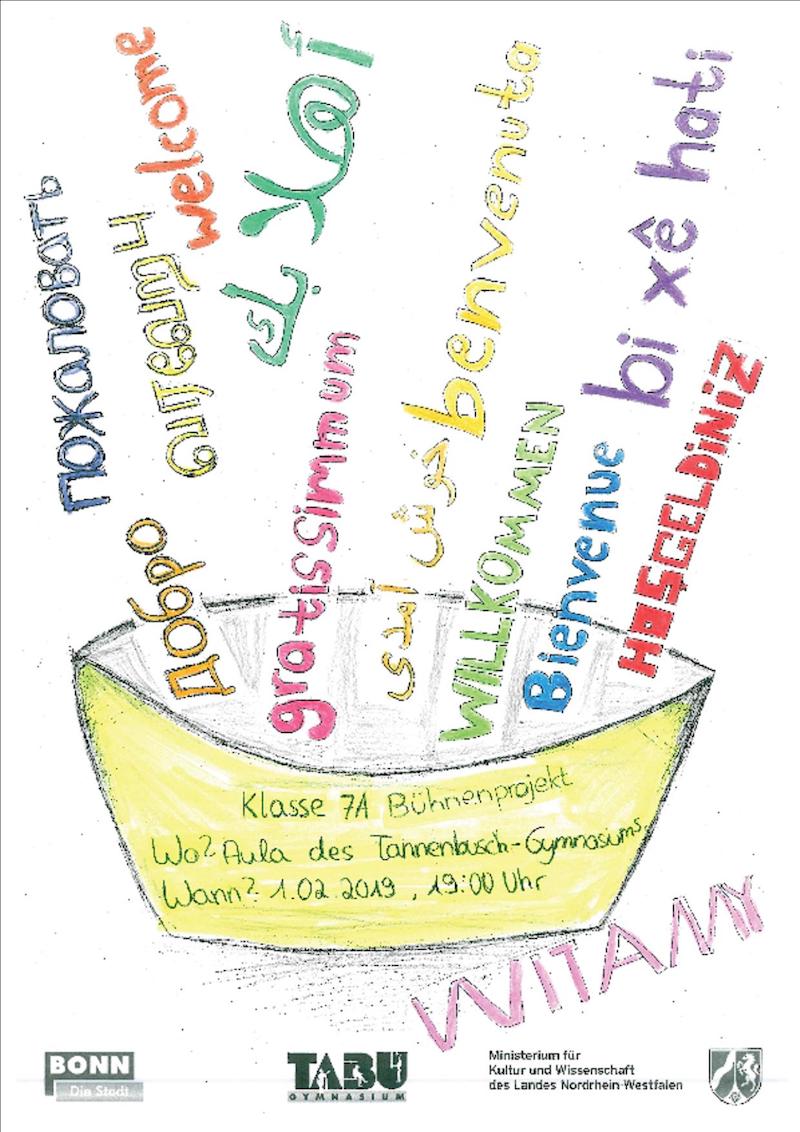 welcome
أهلاً
benvenuta
bi xê hati
пожаловать
Добро
gratissimmum
خوش آمدی
WILLKOMMEN
Bienvenue
HOŞGELDiNiZ
Klasse 7A Bühnenprojekt
Wo? Aula des Tannenbusch-Gymnasiums
Wann? 1.02.2019, 19:00 Uhr
WITAMY
BONN
Die Stadt
TABU
GYMNASIUM
Ministerium für
Kultur und Wissenschaft
des Landes Nordrhein-Westfalen